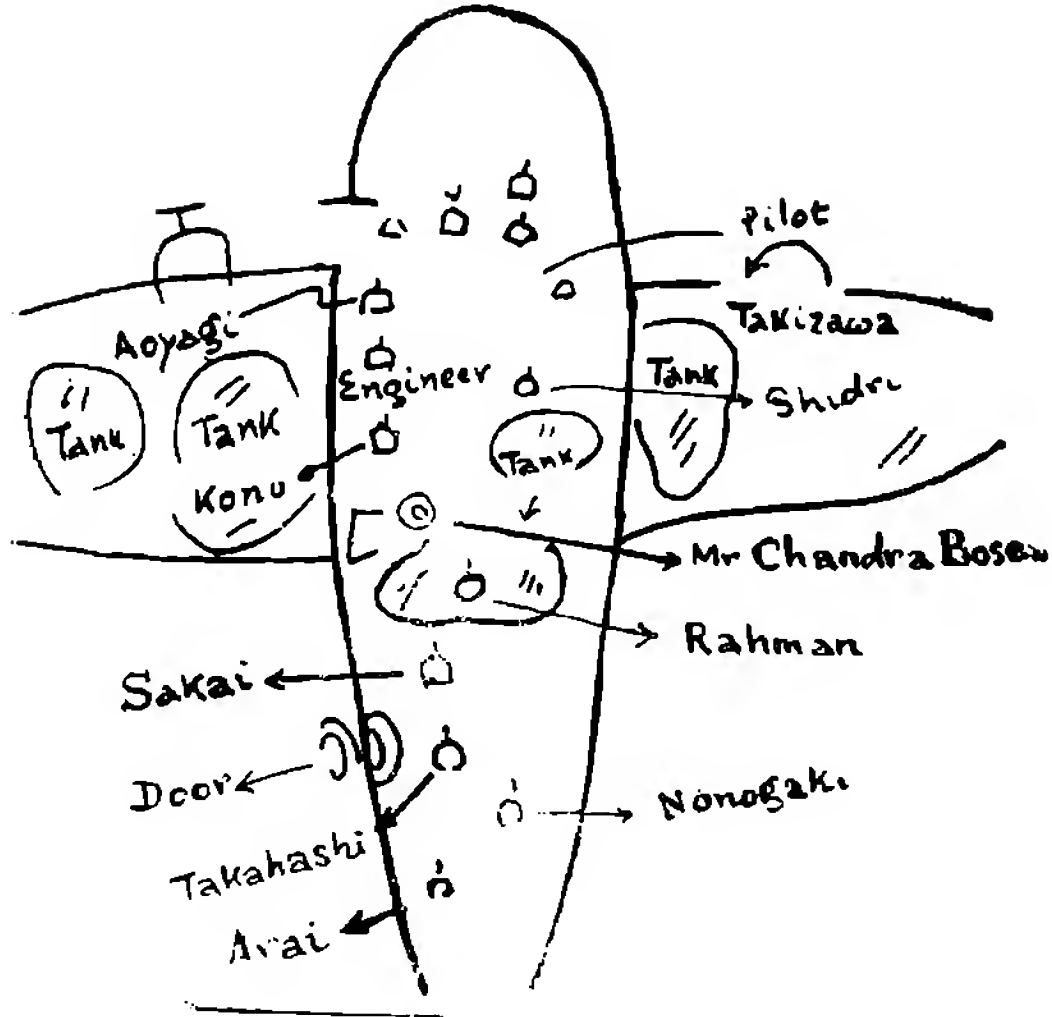 Pilot
Takizawa
Aoyagi
Engineer
Tank
Shidri
Tank
Tank
Tank
Konu
Mr Chandra Bose
Rahman
Sakai
Door
Nonogaki
Takahashi
Arai